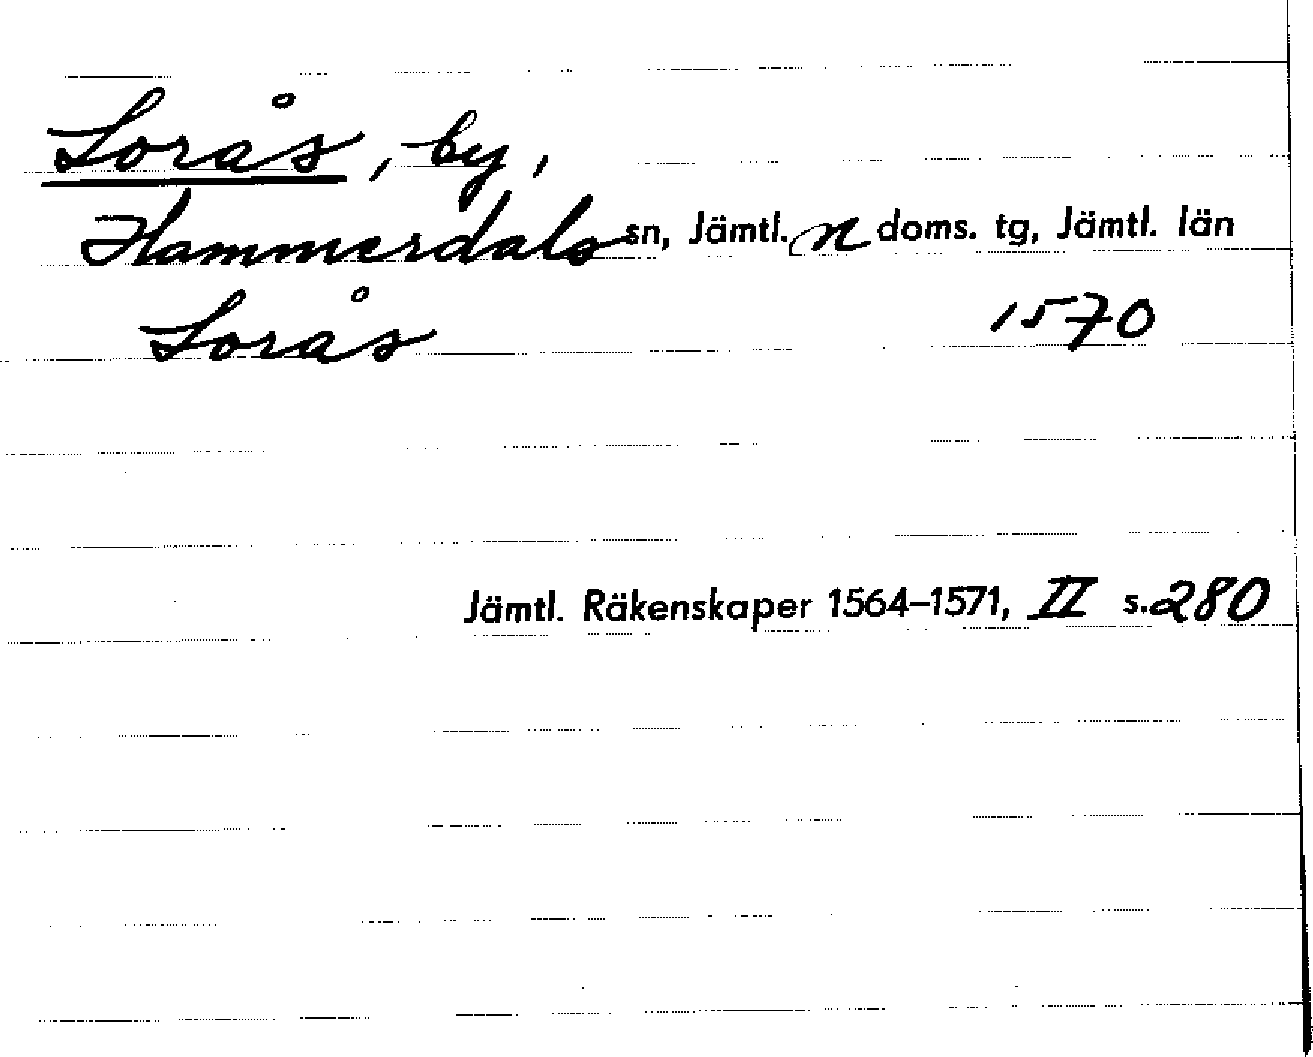 Lorås, by,
Hammerdals sn, Jämtl. n doms. tg, Jämtl. län
Lorås 1570
Jämtl. Räkenskaper 1564–1571, II s. 280